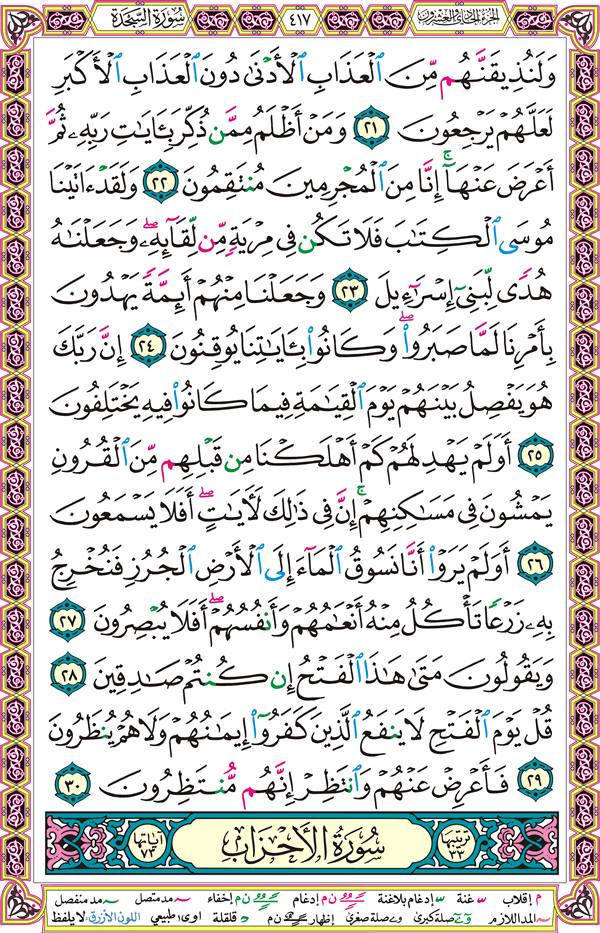 الجزء الحادي والعشرون ٤١٧ سُورَةُ السَّجْدَة
وَلَنُذِيقَنَّهُم مِّنَ ٱلْعَذَابِ ٱلْأَدْنَىٰ دُونَ ٱلْعَذَابِ ٱلْأَكْبَرِ
لَعَلَّهُمْ يَرْجِعُونَ ٢١ وَمَنْ أَظْلَمُ مِمَّن ذُكِّرَ بِـَٔايَٰتِ رَبِّهِۦ ثُمَّ
أَعْرَضَ عَنْهَآ ۚ إِنَّا مِنَ ٱلْمُجْرِمِينَ مُنتَقِمُونَ ٢٢ وَلَقَدْ ءَاتَيْنَا
مُوسَى ٱلْكِتَٰبَ فَلَا تَكُن فِى مِرْيَةٍ مِّن لِّقَآئِهِۦ ۖ وَجَعَلْنَٰهُ
هُدًى لِّبَنِىٓ إِسْرَٰٓءِيلَ ٢٣ وَجَعَلْنَا مِنْهُمْ أَئِمَّةً يَهْدُونَ
بِأَمْرِنَا لَمَّا صَبَرُوا۟ ۖ وَكَانُوا۟ بِـَٔايَٰتِنَا يُوقِنُونَ ٢٤ إِنَّ رَبَّكَ
هُوَ يَفْصِلُ بَيْنَهُمْ يَوْمَ ٱلْقِيَٰمَةِ فِيمَا كَانُوا۟ فِيهِ يَخْتَلِفُونَ
٢٥ أَوَلَمْ يَهْدِ لَهُمْ كَمْ أَهْلَكْنَا مِن قَبْلِهِم مِّنَ ٱلْقُرُونِ
يَمْشُونَ فِى مَسَٰكِنِهِمْ ۚ إِنَّ فِى ذَٰلِكَ لَـَٔايَٰتٍ ۖ أَفَلَا يَسْمَعُونَ
٢٦ أَوَلَمْ يَرَوْا۟ أَنَّا نَسُوقُ ٱلْمَآءَ إِلَى ٱلْأَرْضِ ٱلْجُرُزِ فَنُخْرِجُ
بِهِۦ زَرْعًا تَأْكُلُ مِنْهُ أَنْعَٰمُهُمْ وَأَنفُسُهُمْ ۖ أَفَلَا يُبْصِرُونَ ٢٧
وَيَقُولُونَ مَتَىٰ هَٰذَا ٱلْفَتْحُ إِن كُنتُمْ صَٰدِقِينَ ٢٨
قُلْ يَوْمَ ٱلْفَتْحِ لَا يَنفَعُ ٱلَّذِينَ كَفَرُوٓا۟ إِيمَٰنُهُمْ وَلَا هُمْ يُنظَرُونَ
٢٩ فَأَعْرِضْ عَنْهُمْ وَٱنتَظِرْ إِنَّهُم مُّنتَظِرُونَ ٣٠
ترتيبها ٣٣ سُورَةُ الأَحْزَابِ آياتها ٧٣
م إقلاب غنة إدغام بلاغنة ن م إدغام ن م إخفاء مد متصل مد منفصل
المد اللازم صلة كبرى صلة صغرى إظهار ن م قلقلة اوى طبيعي اللون الأزرق: لا يلفظ